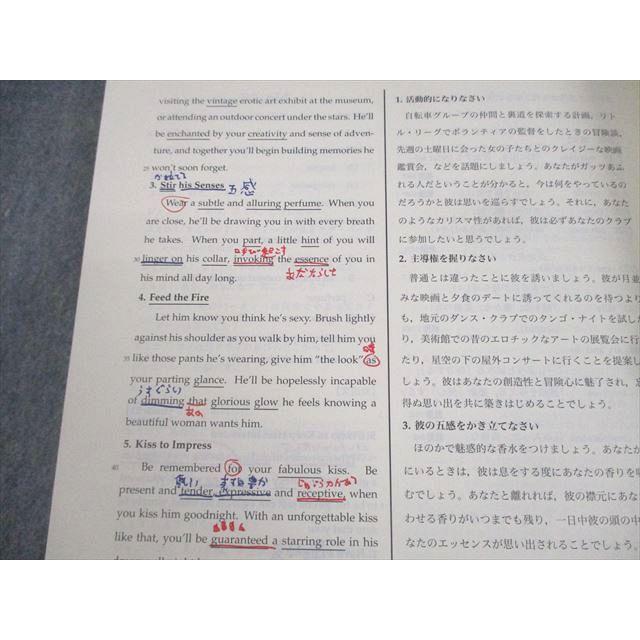 visiting the vintage erotic art exhibit at the museum,
or attending an outdoor concert under the stars. He'll
be enchanted by your creativity and sense of adven-
ture, and together you'll begin building memories he
25 won't soon forget.
3. Stir his Senses 五感
Wear a subtle and alluring perfume. When you
are close, he'll be drawing you in with every breath
he takes. When you part, a little hint of you will
呼び起こす
30 linger on his collar, invoking the essence of you in
his mind all day long.
4. Feed the Fire
Let him know you think he's sexy. Brush lightly
against his shoulder as you walk by him, tell him you
35 like those pants he's wearing, give him "the look" as
your parting glance. He'll be hopelessly incapable
うすぐらい
of dimming that glorious glow he feels knowing a
beautiful woman wants him.
5. Kiss to Impress
40 Be remembered for your fabulous kiss. Be
present and tender, expressive and receptive, when
you kiss him goodnight. With an unforgettable kiss
like that, you'll be guaranteed a starring role in his
1. 活動的になりなさい
自転車グループの仲間と裏道を探索する計画、リト
ル・リーグでボランティアの監督をしたときの冒険談、
先週の土曜日に会った女の子たちとのクレイジーな映画
鑑賞会、などを話題にしましょう。あなたがガッツあふ
れる人だということが分かると、今は何をやっているの
だろうかと彼は思いを巡らすでしょう。それに、あなた
のようなカリスマ性があれば、彼は必ずあなたのクラブ
に参加したいと思うでしょう。
2. 主導権を握りなさい
普通とは違ったことに彼を誘いましょう。彼が月並
みな映画と夕食のデートに誘ってくれるのを待つより
も、地元のダンス・クラブでのタンゴ・ナイトを試した
り、美術館での昔のエロチックなアートの展覧会に行
たり、星空の下の屋外コンサートに行くことを提案し
しょう。彼はあなたの創造性と冒険心に魅了され、忘
得ぬ思い出を共に築きはじめることでしょう。
3. 彼の五感をかき立てなさい
ほのかで魅惑的な香水をつけましょう。あなたが
にいるときは、彼は息をする度にあなたの香りを吸
むでしょう。あなたと離れれば、彼の襟元にあな
わせる香りがいつまでも残り、一日中彼の頭の中
なたのエッセンスが思い出されることでしょう。